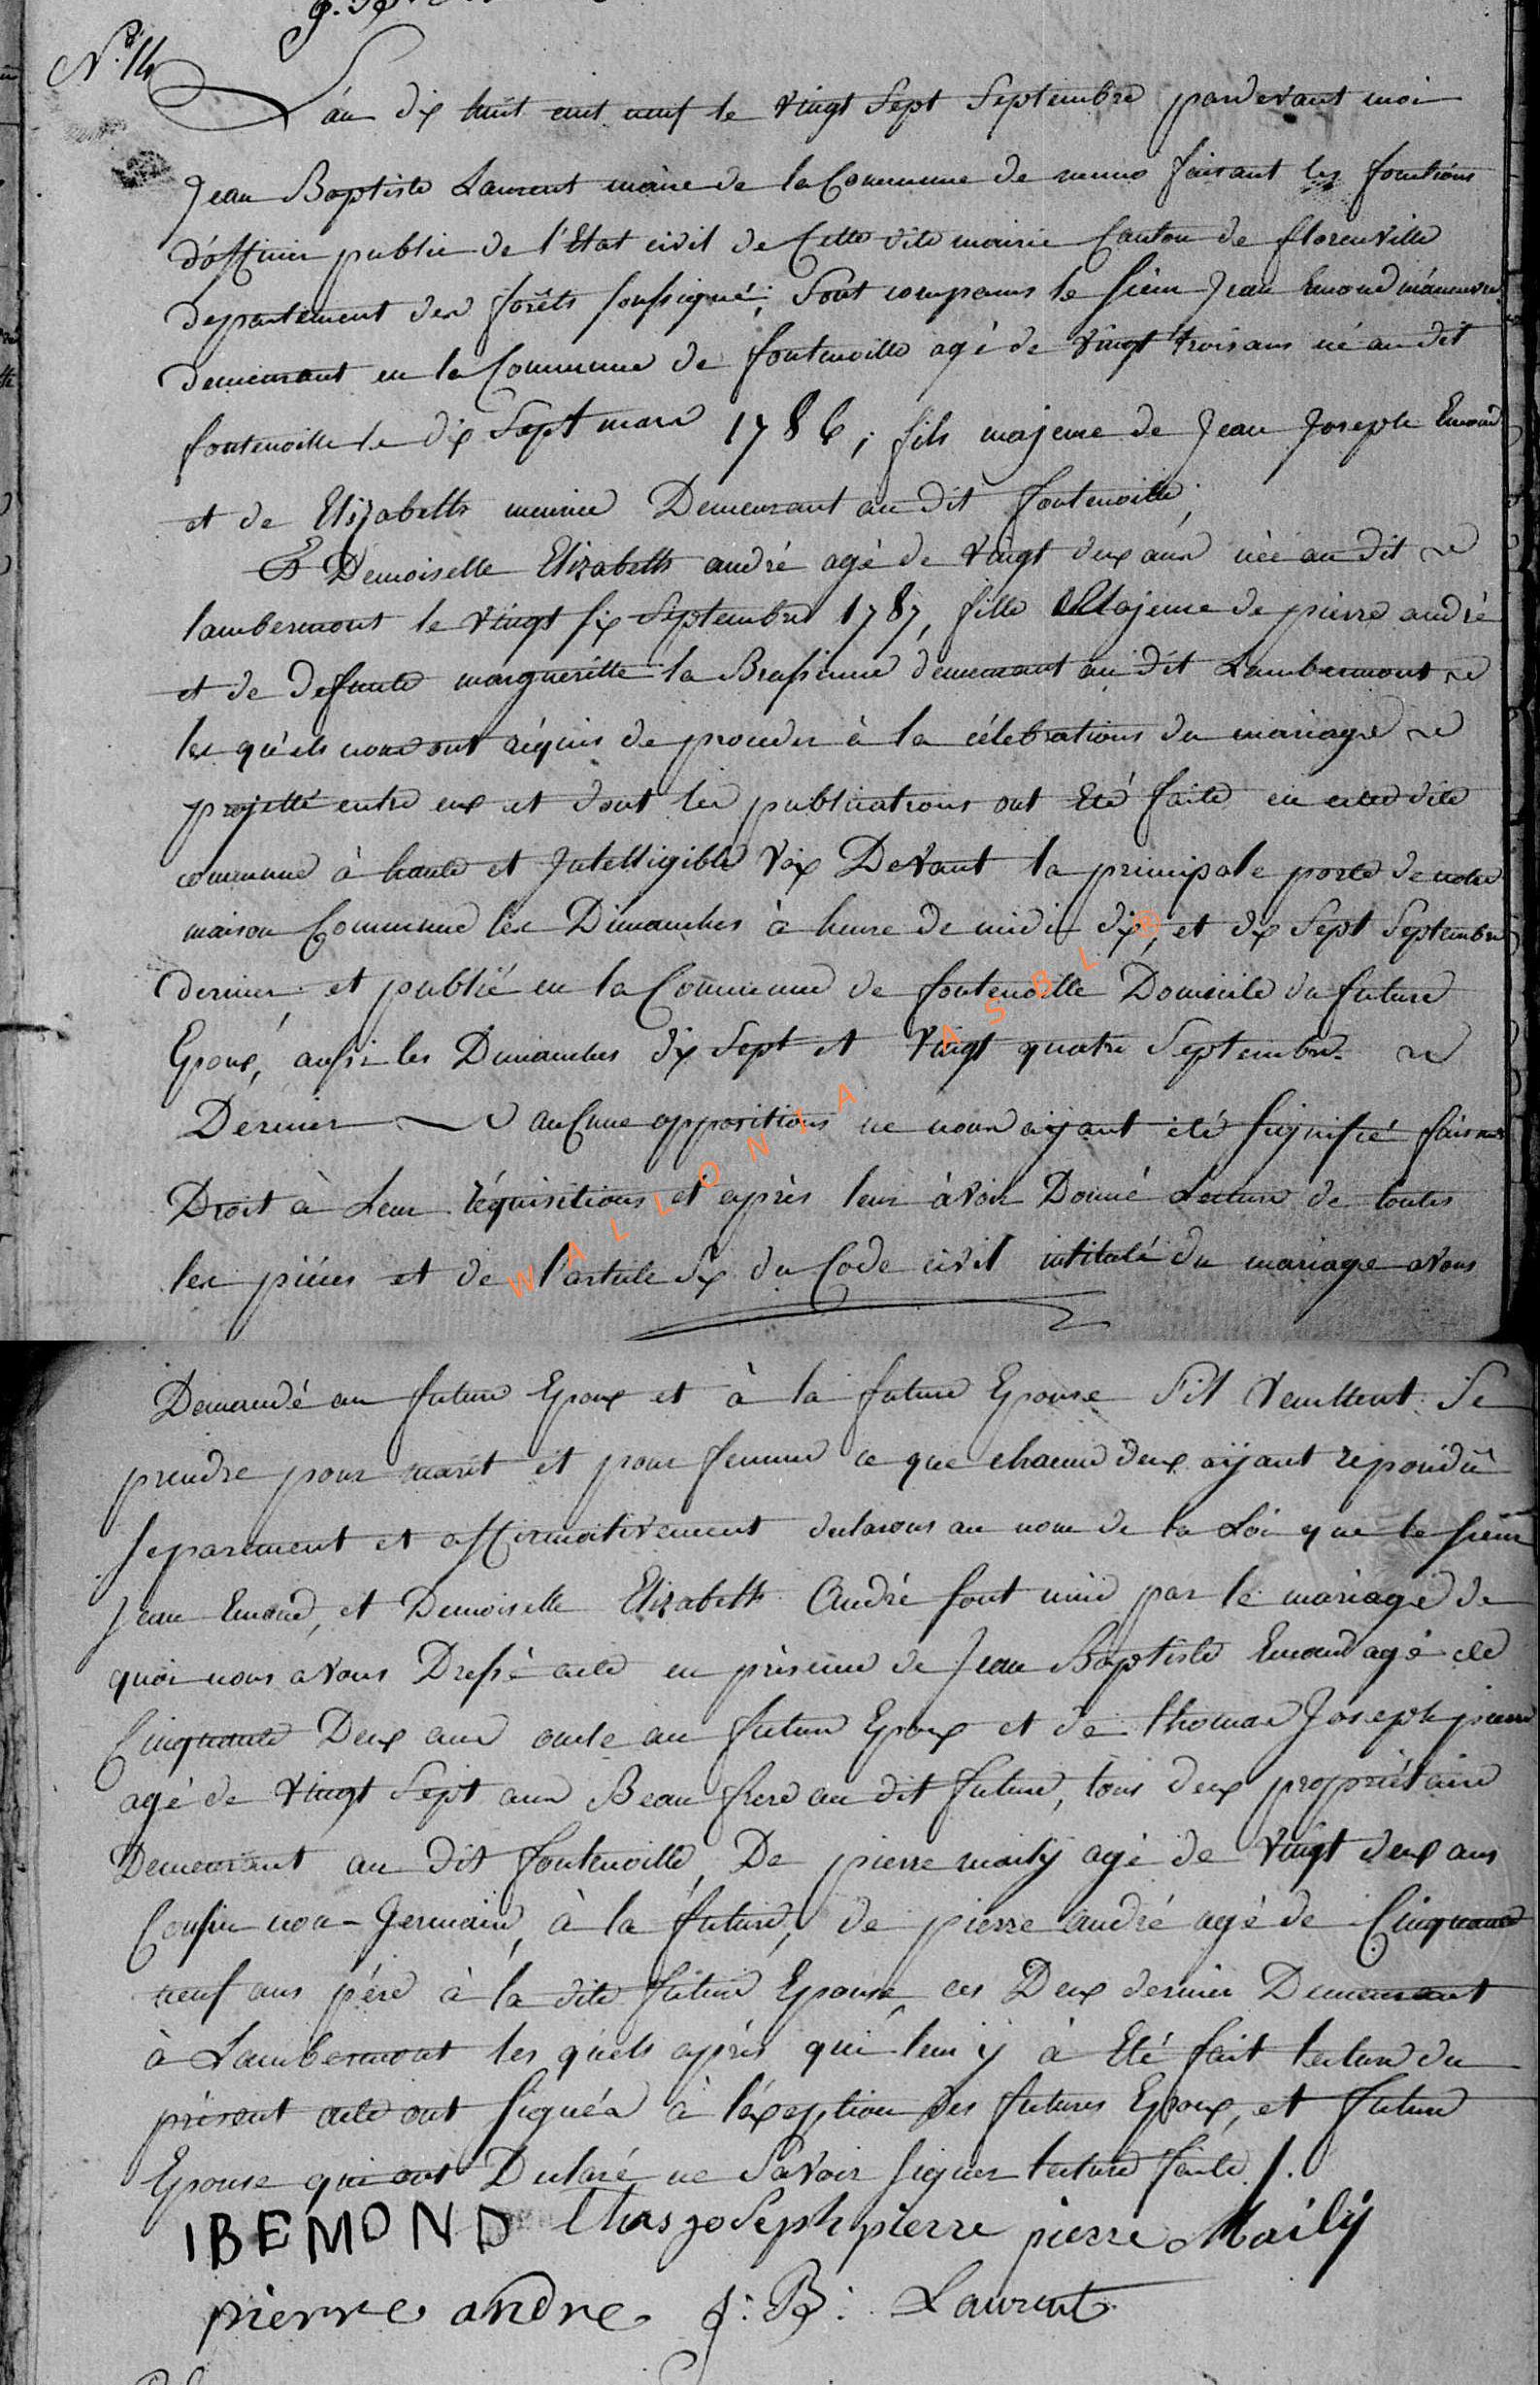 N.º 14
L'án dix huit cent neuf le vingt Sept Septembre pardevant moi
Jean Baptiste Laurent maire de la Commune de muno faisant les fonctions
d'officier public de l'Etat civil de Cette dite mairie Canton de florenville
departement des forêts soussigné; Sont comparus le sieur Jean Emond maneuvre
demeurant en la Commune de fontenoille agé de vingt trois ans né au dit
fontenoille le dix Sept mars 1786, fils majeure de Jean Joseph Emond
et de Elizabeth Demeurant au dit fontenoille;
Et Demoiselle Elizabeth andré agé de vingt deux ans née au dit
lambermont le vingt six Septembre 1787, fille Majeure de pierre andré
et de defunte margueritte la Brassinne demeurant au dit Lambermont
les quels nous ont réquis de proceder à la célebrations du mariage
projetté entre eux et dont les publications ont Eté faite en cette dite
commune à haute et Intelligible voix Devant la principale porte de notre
maison Commune les Dimanches à heure de midi dix, et dix Sept Septembre
dernier, et publié en la Commune de fontenoille Domicile du future
Epoux, aussi les Dimanches dix Sept et vingt quatre Septembre
Dernier auCune oppositions ne nous aÿant été signifié faisant
Droit à Leur réquisitions et après leur àvoir Donné Lecture de toutes
les piéces et de l'article Six du Code civil intitulé du mariage avons
Demandé au future Epoux et à la future Epouse S'il veullent Se
prendre pour marit et pour femme ce que chacun deux aÿant repondû
separement et affirmativement declarons au nom de la Loi que le sieur
Jean Emond, et Demoiselle Elizabeth André sont unie par le mariage de
quoi nous avons Dressé acte en présence de Jean Baptiste Emond agé de
Cinquante Deux ans oncle au futur Epoux et de thomas Joseph pierre
agé de vingt Sept ans Beau frere au dit future, tous deux propriétaire
Demeurant au dit fontenoille, De pierre maily agé de vingt deux ans
Cousin non-Germain, à la future, de pierre andré agé de Cinquante
neuf ans pére à la dite future Epouse, ces Deux dernier Demeurant
à Lambermont les quels après qui leur y à Eté fait lecture du
présent acte ont signés à l'éxeption des futures Epoux, et future
Epouse qui ont Declaré ne Savoir signer lecture faite /.
IBEMOND thas joseph pierre pierre Maily
pierre andre J: B: Laurent
WALLONIA ASBL ®